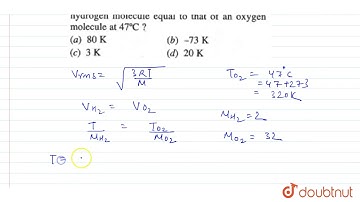 hydrogen molecule equal to that of an oxygen
molecule at 47ºC ?
(a) 80 K (b) –73 K
(c) 3 K (d) 20 K
Vrms = √3RT/M
TO2 = 47°C
= 47+273
= 320K
VH2 = VO2
MH2 = 2
T/MH2 = TO2/MO2
MO2 = 32
T =
doubtnut